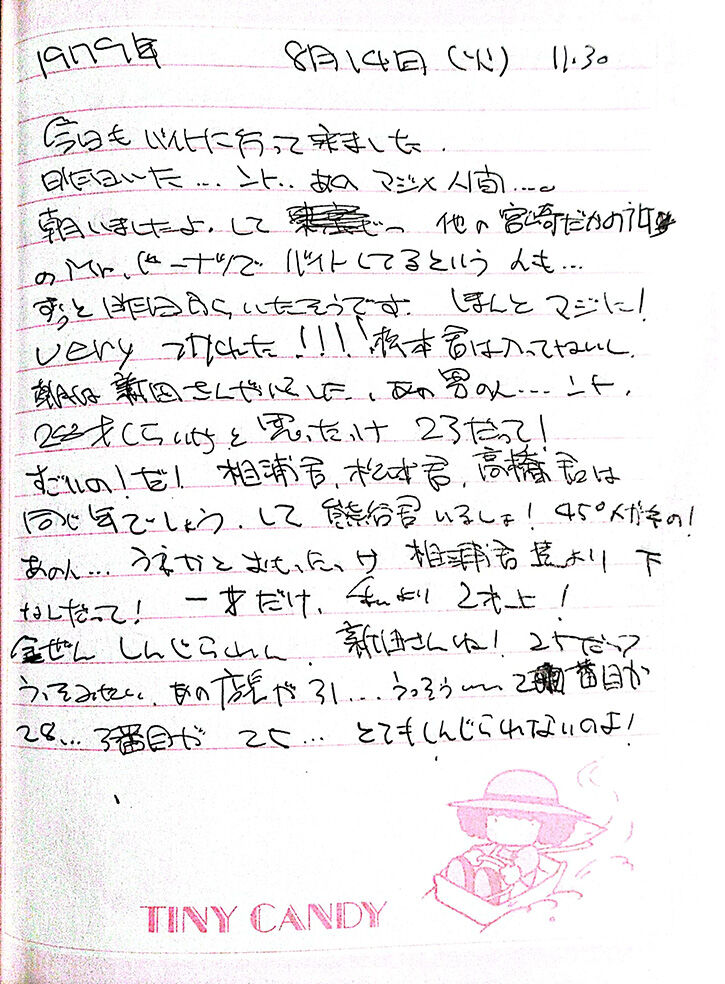 1979年 8月14日(火) 11.30
今日もバイトに行って来ました.
昨日いた... ント.. あの マジメ人間....
朝いましたよ. して 他の宮崎だかの
のMr.ドーナツで バイトしてるという 人も...
ずっと昨日からいたそうです. ほんと マジに!
very つかれた!!!! 松本君は入ってないし.
朝は 新田さんがいました. あの男の人... ント.
22才くらいかと思ったっけ 23だって!
すごいの!だ! 相浦君. 松本君. 高橋君は
同じ年でしょう. して 熊谷君いるしょ! 45°メガネの!
あの人... うえかとおもったっけ 相浦君達より 下
なんだって! 一才だけ. 私より 2才上!
全ぜん しんじられん. 新田さんね! 25だって
うっそみたい. あの店長が 31... うっそぅ... 2番目が
28... 3番目が 25... とてもしんじられないのよ!
TINY CANDY